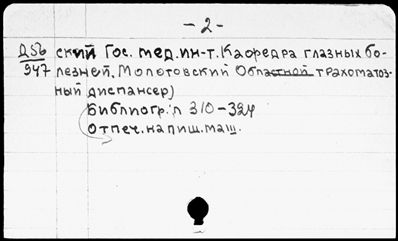 - 2 -
Д56 ский Гос. мед. ин-т. Кафедра глазных бо-
947 лезней, Молотовский Областной трахоматоз-
ный диспансер)
Библиогр: л 310-324
Отпеч. на пиш. маш.